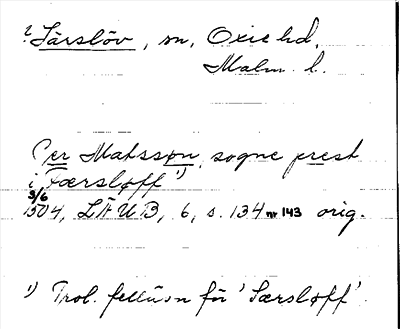 ? Särslöv, sn, Oxie hd,
Malm. l.
Per Matssøn, sogne prest
i Færsløff 1)
3/6
1504, LÄUB, 6, s. 134 nr 143 orig.
1) Trol. fellüsn för 'Særsløff'